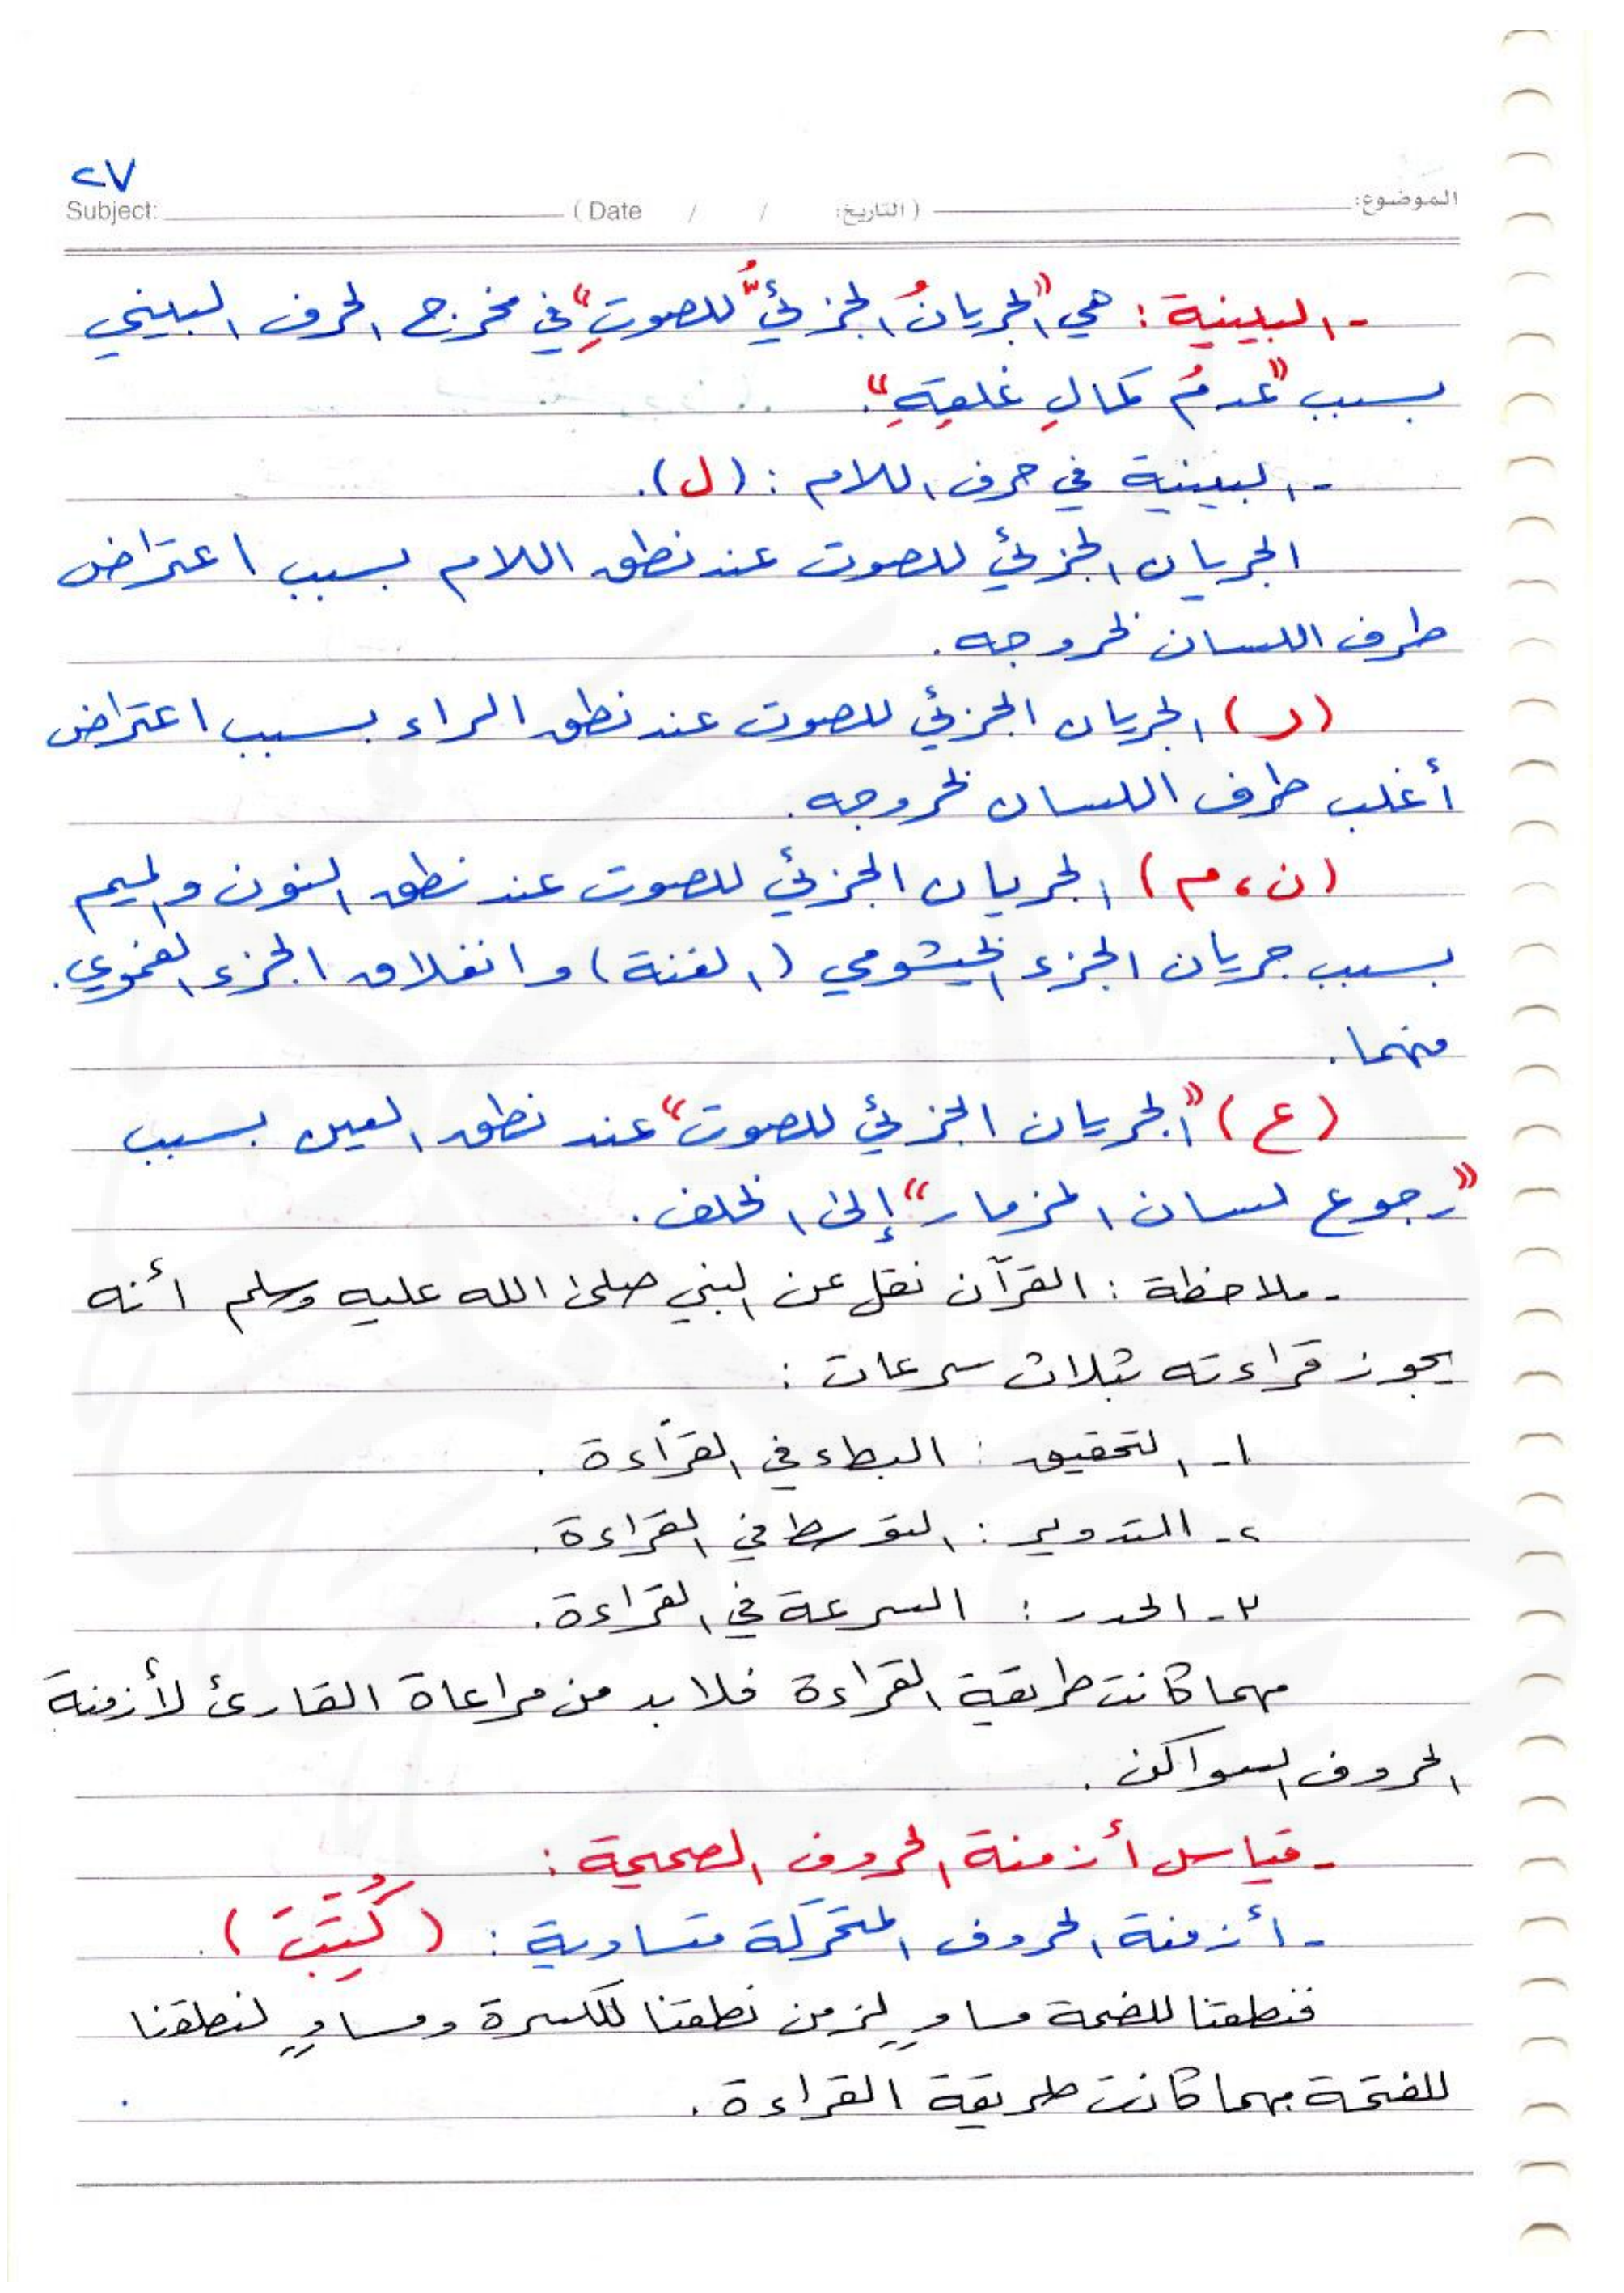 ٢٧
الموضوع: (التاريخ: / / Date) Subject:
- البينية : هي "الجريانُ الجزئيُّ للصوتِ" في مخرج الحرف البيني
بسبب "عدمُ كمالِ غلقِهِ".
- البينية في حرف اللام : (ل).
الجريان الجزئي للصوت عند نطق اللام بسبب اعتراض
طرف اللسان لخروجه.
(ر) الجريان الجزئي للصوت عند نطق الراء بسبب اعتراض
أغلب طرف اللسان لخروجه.
(ن، م) الجريان الجزئي للصوت عند نطق النون والميم
بسبب جريان الجزء الخيشومي (الغنة) وانغلاق الجزء الفموي.
منهما.
(ع) "الجريان الجزئي للصوت" عند نطق العين بسبب
"رجوع لسان المزمار" إلى الخلف.
- ملاحظة : القرآن نقل عن النبي صلى الله عليه وسلم أنه
يجوز قراءته بثلاث سرعات :
١- التحقيق : البطء في القراءة.
٢- التدوير : التوسط في القراءة.
٣- الحدر : السرعة في القراءة.
مهما كانت طريقة القراءة فلا بد من مراعاة القارئ لأزمنة
الحروف السواكن.
- قياس أزمنة الحروف الصحيحة :
- أزمنة الحروف المتحركة متساوية : (كُتِبَ).
فنطقنا للضمة مساوٍ لزمن نطقنا للكسرة ومساوٍ لنطقنا
للفتحة مهما كانت طريقة القراءة.